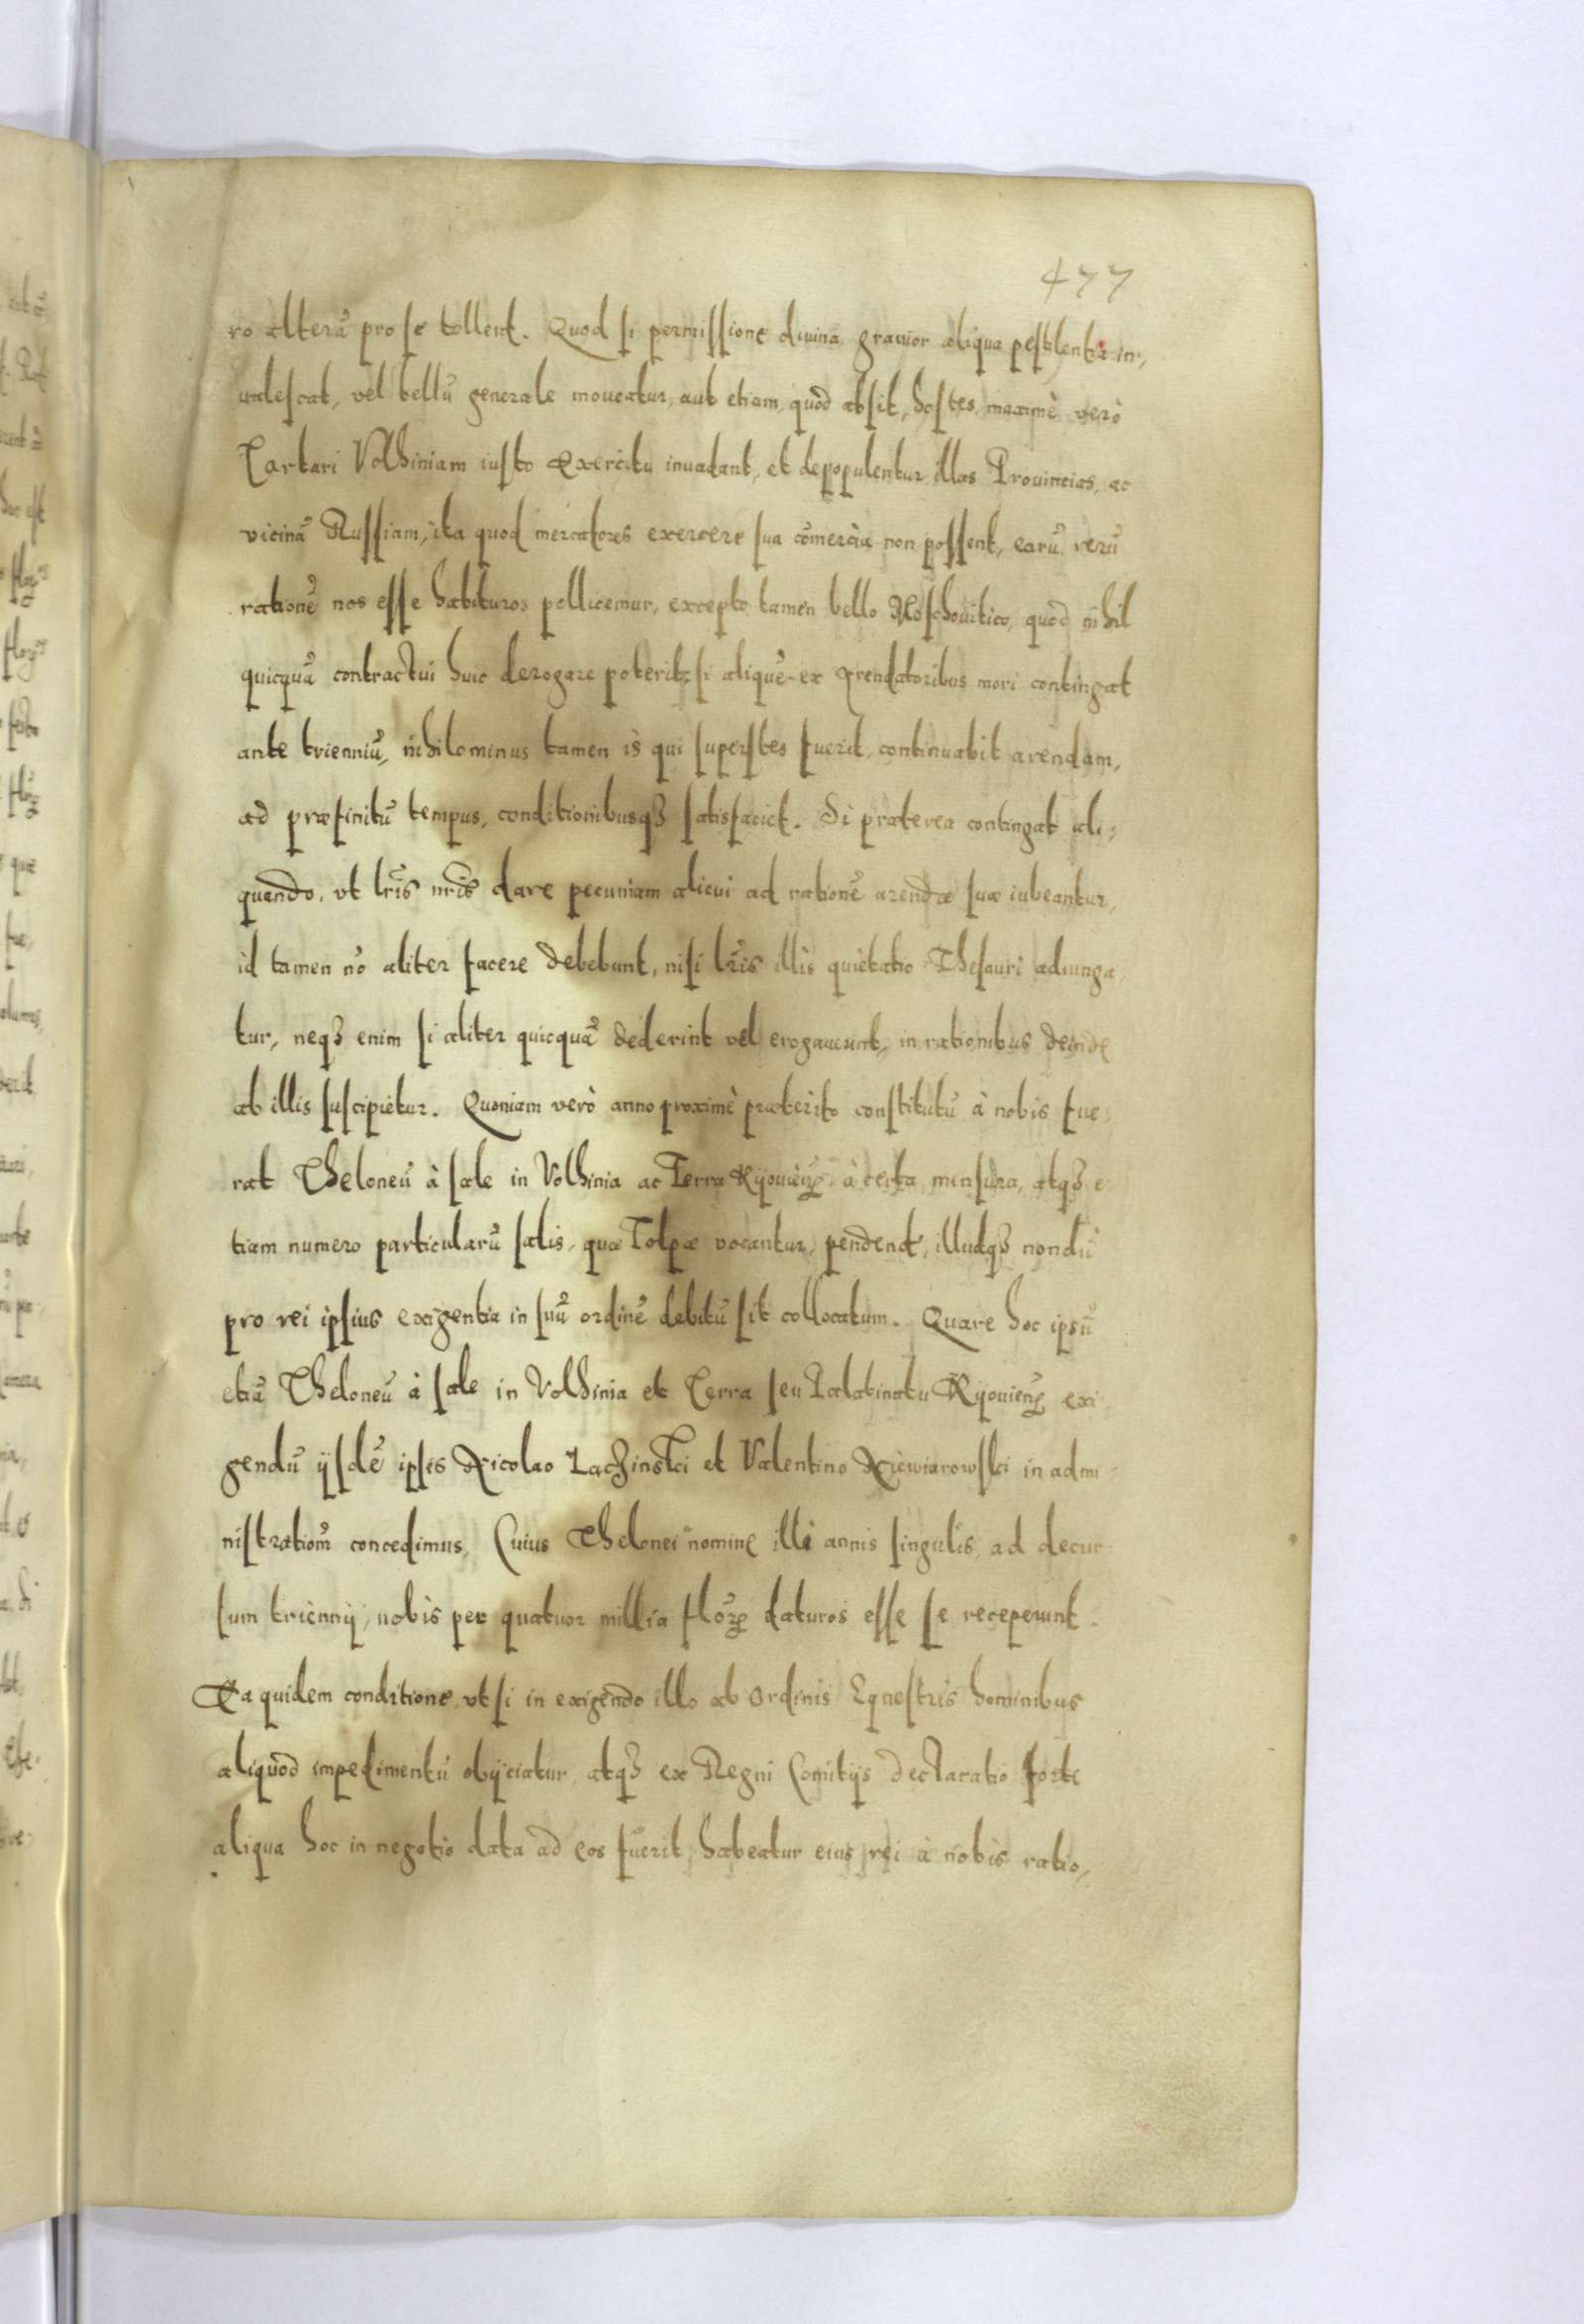 477
ro alterā pro se tollent. Quod si permissione divina grauior aliqua pestilentia in,,
ualescat, vel bellū generale moueatur, aut etiam, quod absit, hostes, maximè verò
Tartari Volhiniam iusto Exercitu inuadant, et depopulentur illas Prouincias, ac
vicinā Russiam, ita quod mercatores exercere sua cōmercia non possent, earū rerū
rationē nos esse habituros pollicemur, excepto tamen bello Moschouitico, quod nihil
quicquā contractui huic derogare poterit, si aliquē ex Arendatoribus mori contingat
ante trienniū, nihilominus tamen is qui superstes fuerit, continuabit arendam,
ad præfinitū tempus, conditionibusqȝ satisfaciet. Si præterea contingat ali,,
quando, vt lr̄is nr̄is dare pecuniam alicui ad rationē arendæ suæ iubeantur,
id tamen nō aliter facere debebunt, nisi lr̄is illis quietatio Thesauri adiunga
tur, neqȝ enim si aliter quicquā dederint vel erogauerint, in rationibus deinde
ab illis suscipietur. Quoniam verò anno proximè præterito constitutū à nobis fue,,
rat Theloneū à sale in Volhinia ac Terra Kijouieñ. à certa mensura, atqȝ e,,
tiam numero particularū salis, quæ Tolpæ vocantur, pendendū, illudqȝ nondū
pro rei ipsius exigentia in suū ordinē debitū sit collocatum. Quare hoc ipsū
etiā Theloneū à sale in Volhinia et Terra seu Palatinatu Kijouieñ. exi,,
gendū ijsdē ipsis Nicolao Lachinski et Valentino Niewiarowski in admi,,
nistrationē concedimus, Cuius Thelonei nomine illi annis singulis, ad decur,,
sum triennij, nobis per quatuor millia flor̄. daturos esse se receperunt.
Ea quidem conditione, vt si in exigendo illo ab Ordinis Equestris hominibus
aliquod impedimentū obijciatur, atqȝ ex Regni Comitijs declaratio forte
aliqua hoc in negotio data ad eos fuerit, habeatur eius rei à nobis ratio,